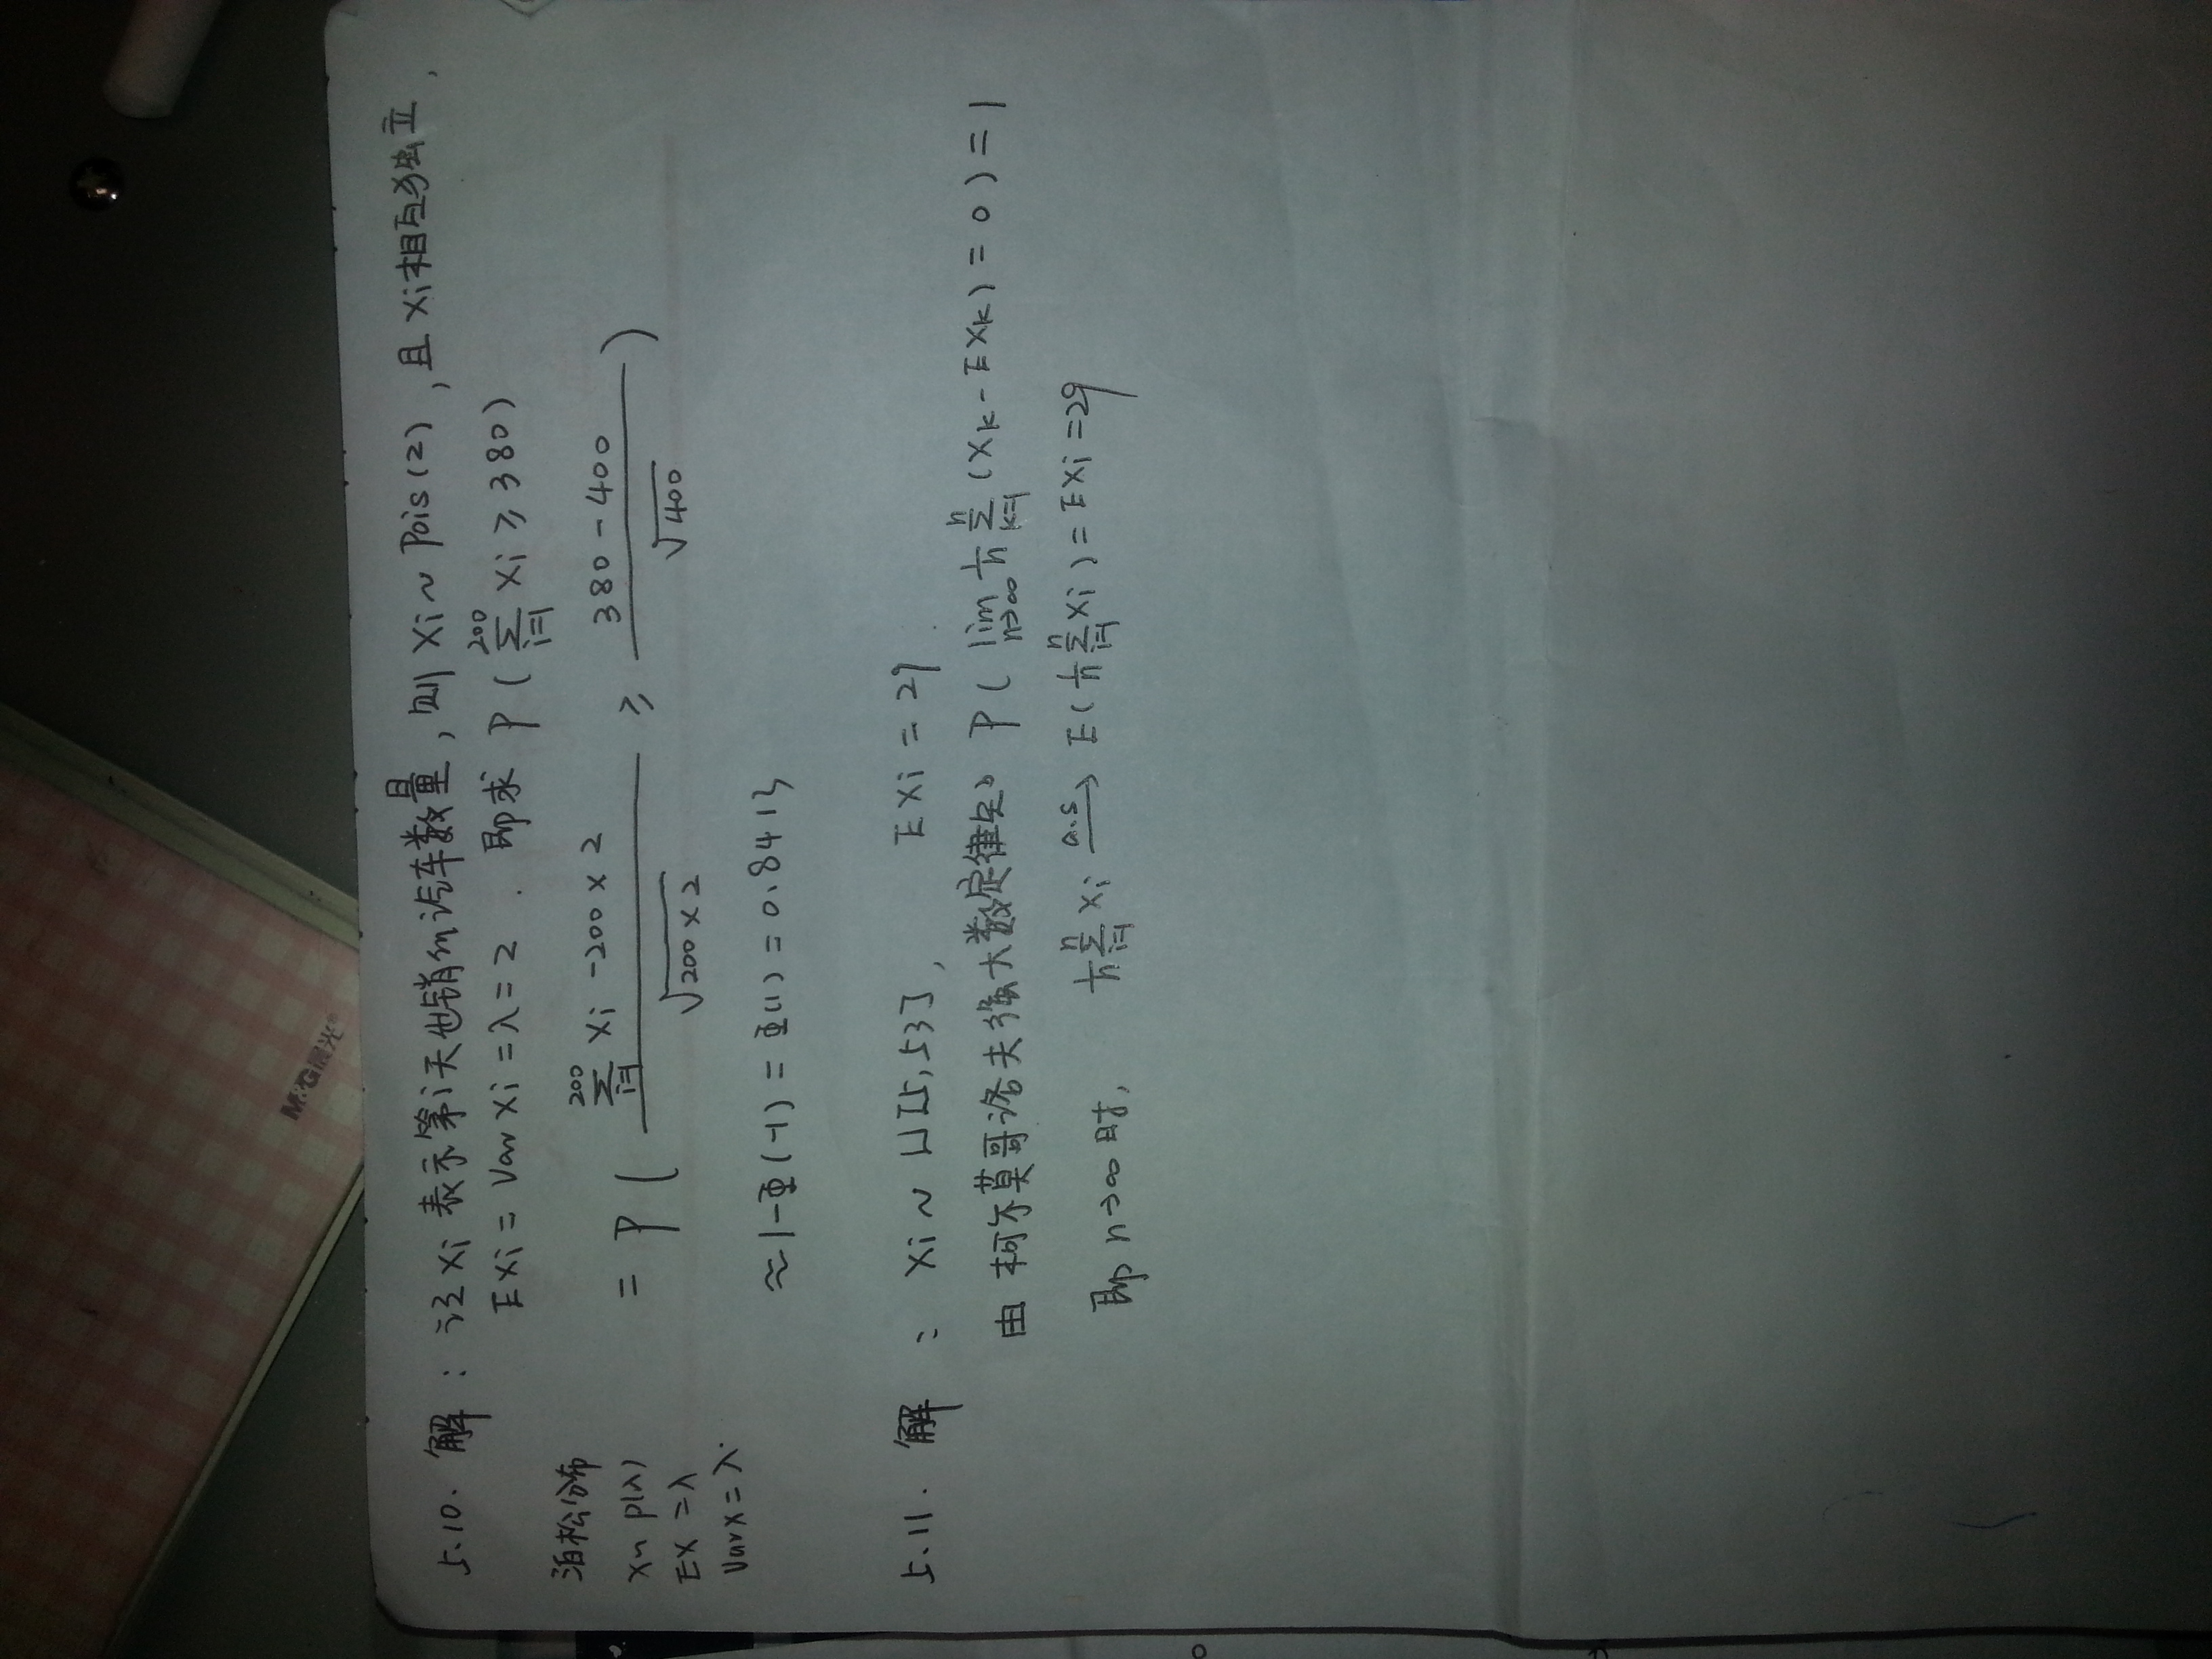 M&G晨光®
5.10. 解: 记 Xi 表示第i天他销的汽车数量, 则 Xi ~ Pois(2), 且 Xi 相互独立,
EXi = Var Xi = λ = 2 . 即求 P(∑_{i=1}^{200} Xi ≥ 380)
泊松分布
X~ P(λ)
EX = λ
VarX = λ.
= P( (∑_{i=1}^{200} Xi - 200 × 2)/√(200×2) ≥ (380 - 400)/√400 )
≈ 1-Φ(-1) = Φ(1) = 0.8413
5.11. 解: Xi ~ U[5,53], EXi = 29.
由 柯尔莫哥洛夫强大数定律知 P( lim_{n→∞} 1/n ∑_{k=1}^{n} (Xk - EXk) = 0 ) = 1
即 n→∞ 时, 1/n ∑_{i=1}^{n} Xi —a.s→ E(1/n ∑_{i=1}^{n} Xi) = EXi = 29